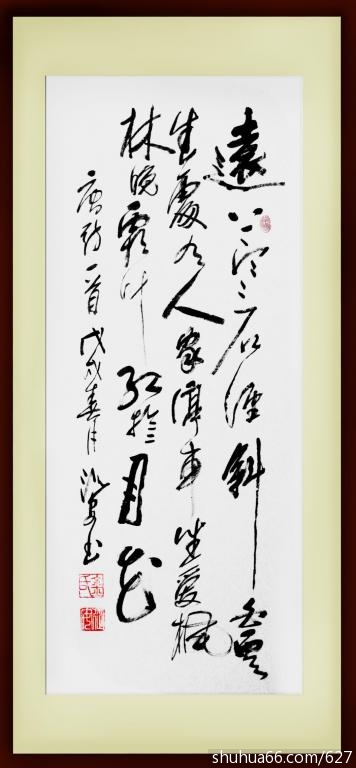 遠上寒山石徑斜白雲
生處有人家停車坐愛楓
林晚霜叶紅於二月花
唐詩一首戊戌春月书
shuhua66.com/627